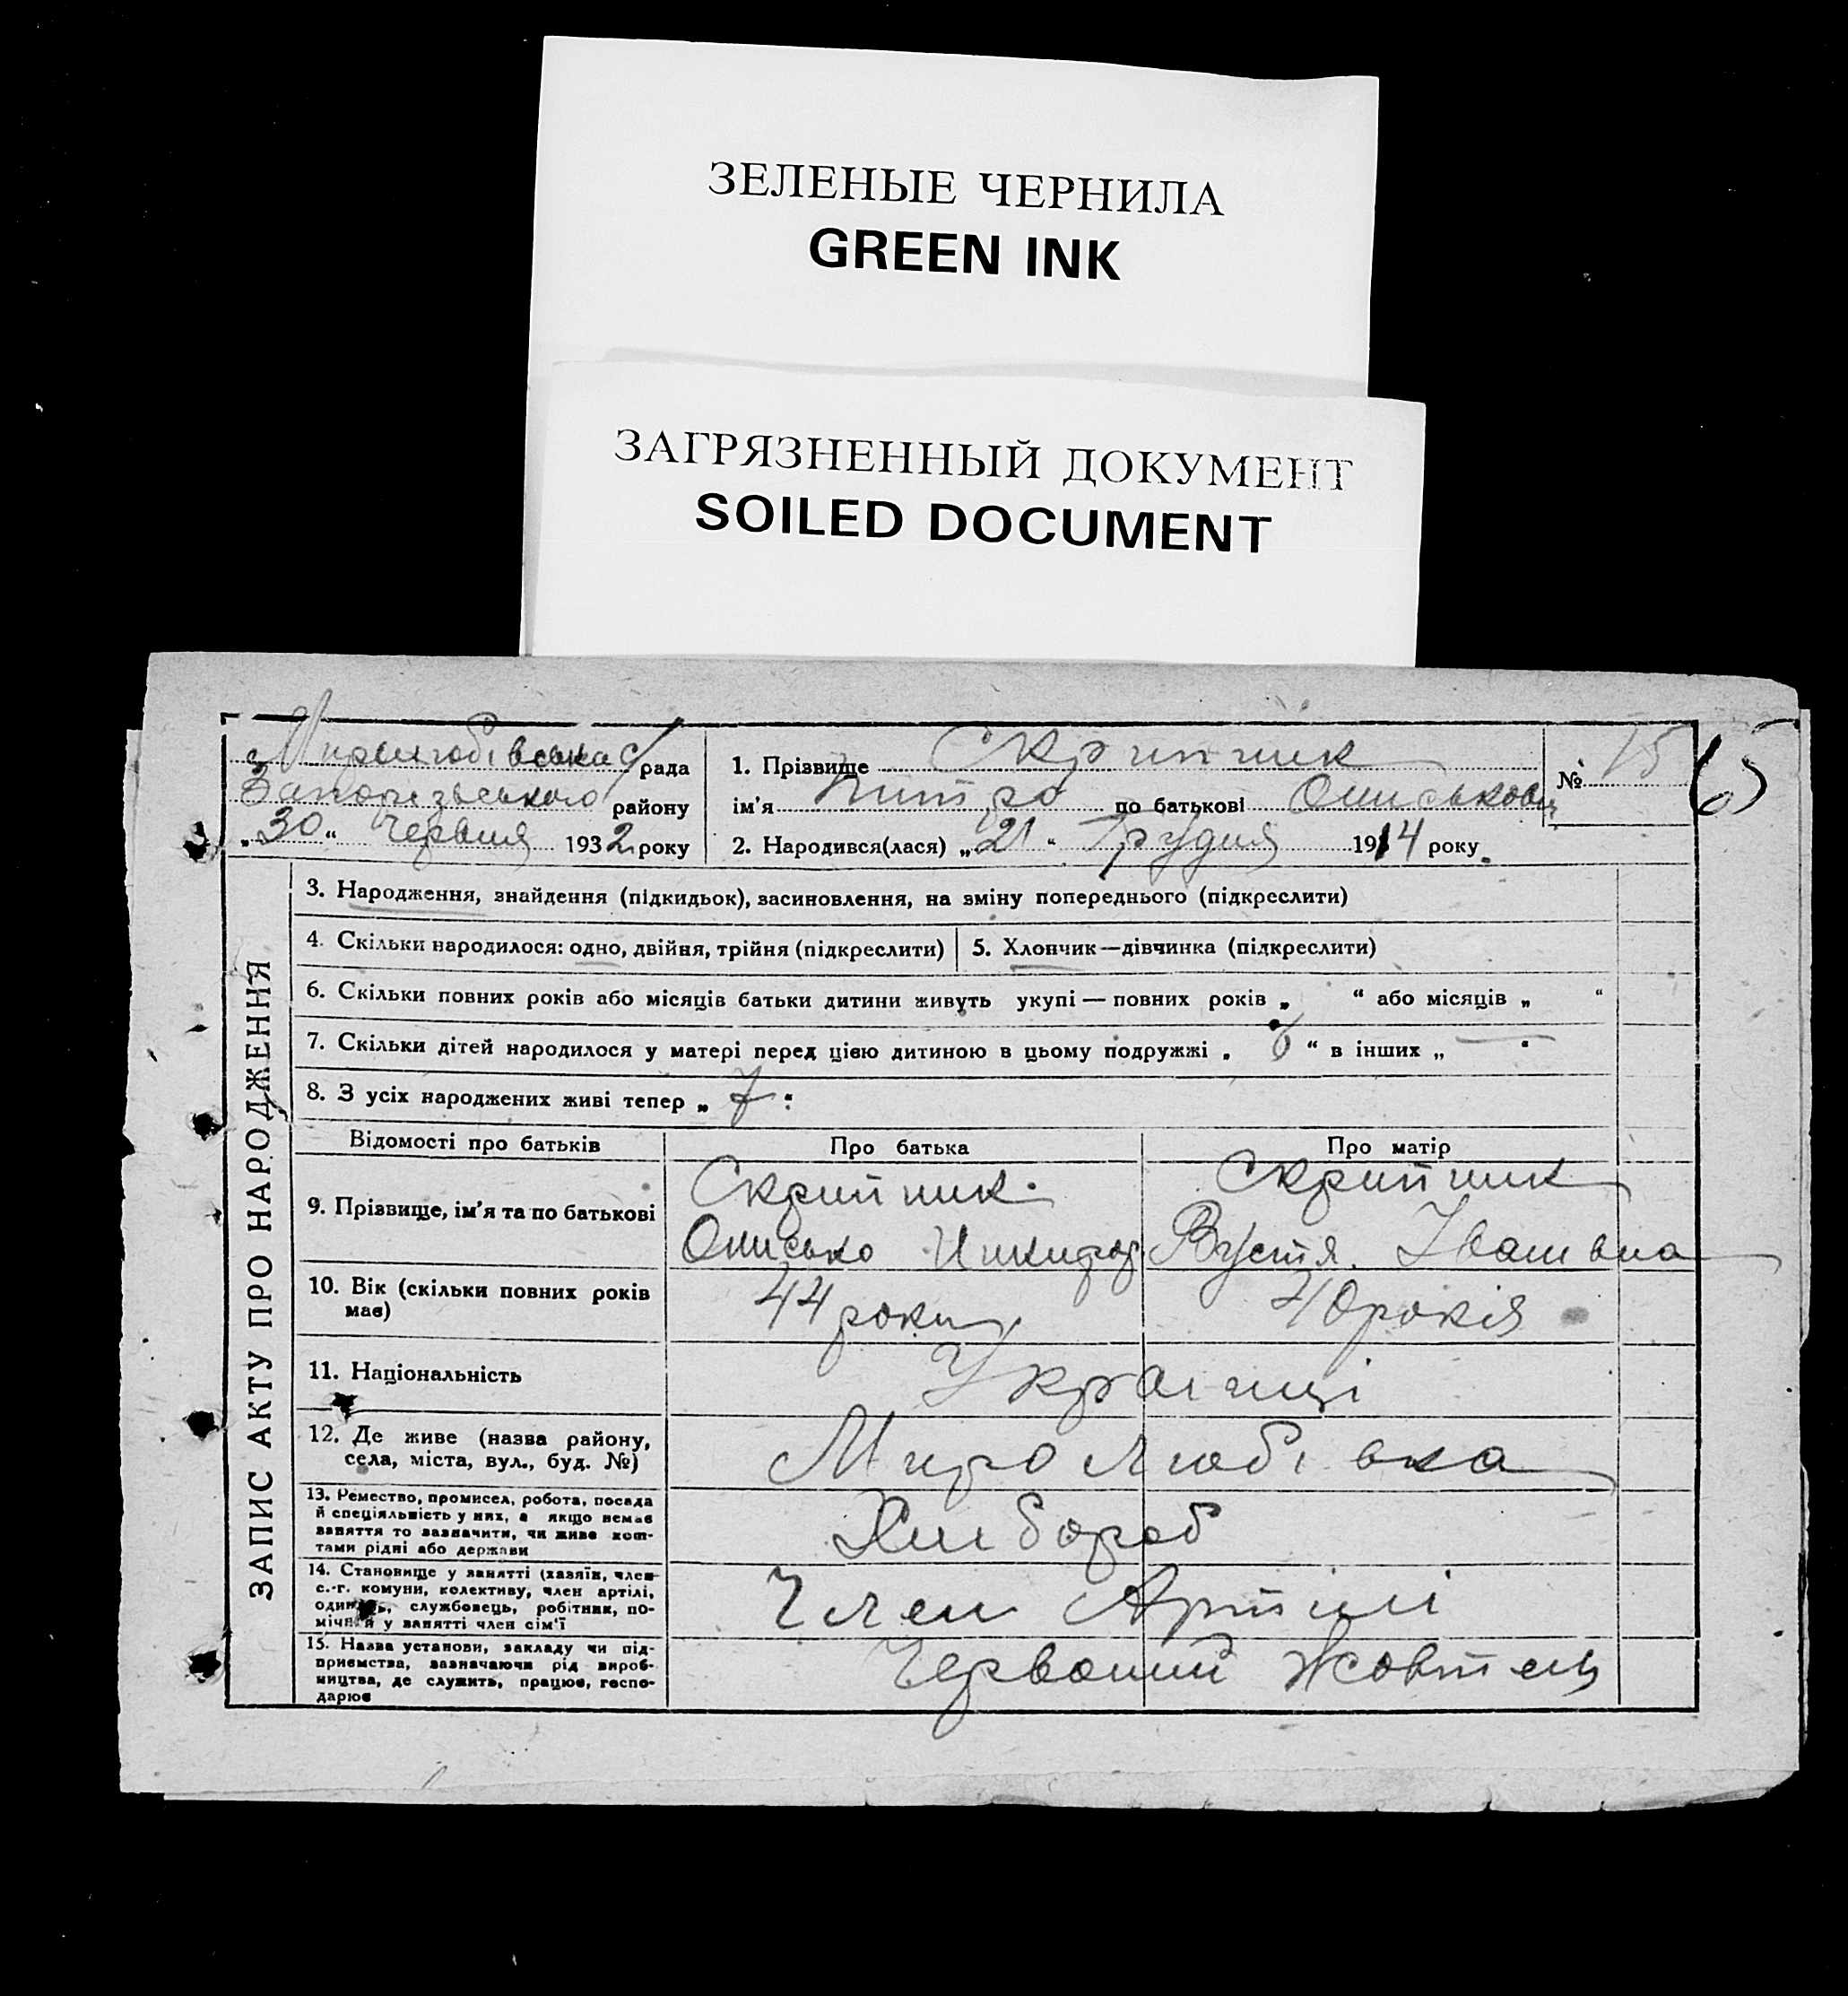 ЗЕЛЕНЫЕ ЧЕРНИЛА
GREEN INK
ЗАГРЯЗНЕННЫЙ ДОКУМЕНТ
SOILED DOCUMENT
С/рада
Запорізьського району
„30“ Червня 1932 року
1. Прізвище Скрипник
ім'я по батькові Ониськович
№ 15
2. Народився(лася) „21“ Грудня 1914 року
ЗАПИС АКТУ ПРО НАРОДЖЕННЯ
3. Народження, знайдення (підкидьок), засиновлення, на зміну попереднього (підкреслити)
4. Скільки народилося: одно, двійня, трійня (підкреслити)
5. Хлопчик—дівчинка (підкреслити)
6. Скільки повних років або місяців батьки дитини живуть укупі — повних років „ “ або місяців „ “
7. Скільки дітей народилося у матері перед цією дитиною в цьому подружжі „ 6 “ в інших „ — “
8. З усіх народжених живі тепер „ 7 :
Відомості про батьків
Про батька
Про матір
9. Прізвище, ім'я та по батькові
Скрипник
Онисько Никифор
Скрипник
Вустя Івановна
10. Вік (скільки повних років
має)
44 роки
40 років
11. Національність
Українці
12. Де живе (назва району,
села, міста, вул., буд. №)
Миролюбівка
13. Ремество, промисел, робота, посада
й спеціяльність у них, а якщо немає
заняття то зазначити, чи живе кош-
тами рідні або держави
Хлибороб
14. Становище у занятті (хазяїн, член
с.-г. комуни, колективу, член артілі,
одинець, службовець, робітник, по-
мічний у занятті член сім'ї
Член Артілі
15. Назва установи, закладу чи під-
приємства, зазначаючи рід вироб-
ництва, де служить, працює, госпо-
дарює
Червоний Жовтень